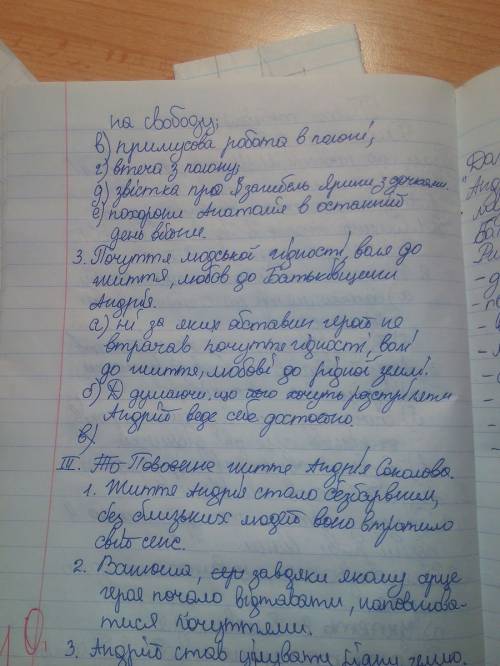 на свободу;
в) примусова робота в полоні;
г) втеча з полону;
д) звістка про загибель Ірини з дочками.
е) похорони Анатолія в останній
день війни.
3. Почуття людської гідності, воля до
життя, любов до Батьківщини
Андрія.
а) ні за яких обставин герой не
втрачав почуття гідності, волі
до життя, любові до рідної землі.
б) Думаючи, що його хочуть розстріляти
Андрій веде себе достойно.
в)
III. Повоєнне життя Андрія Соколова.
1. Життя Андрія стало безбарвним,
без близьких людей воно втратило
свій сенс.
2. Ванюша, завдяки якому серце
героя почало відтавати, наповнюва-
тися почуттями.
3. Андрій став цінувати
10.
Дал
"Андр
Ри